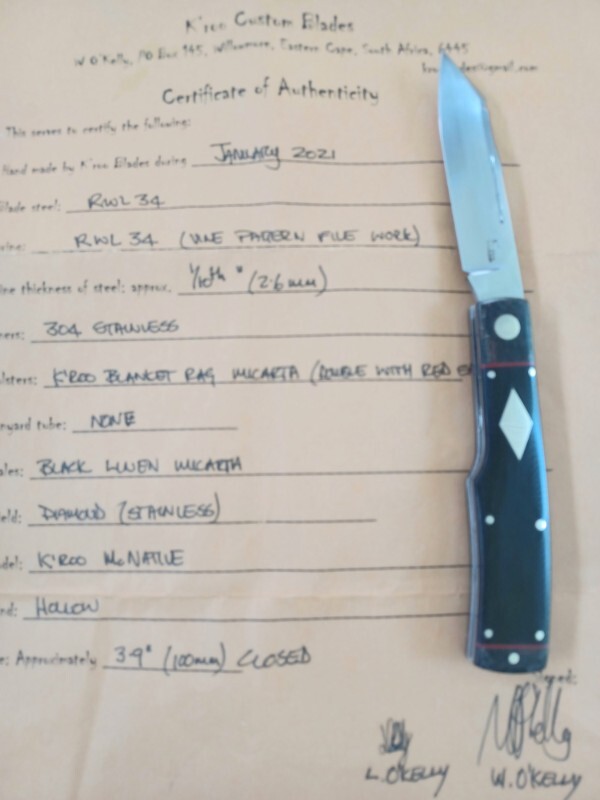 K'roo Custom Blades
W O'Kelly, PO Box 145, Willowmore, Eastern Cape, South Africa, 6445
@gmail.com
Certificate of Authenticity
This serves to certify the following:
Hand made by K'roo Blades during JANUARY 2021
Blade steel: RWL 34
RWL 34 (VINE PATERN FILE WORK)
thickness of steel: approx. 1/10th " (2.6mm)
304 STAINLESS
K'ROO BLANCET RAG MICARTA (DOUBLE WITH RED
nyard tube: NONE
ales: BLACK LINEN MICARTA
eld: DIAMOND (STAINLESS)
del: K'ROO McNATIVE
nd: HOLLOW
e: Approximately 3.9" (100mm) CLOSED
L. O'KELLY
W. O'KELLY